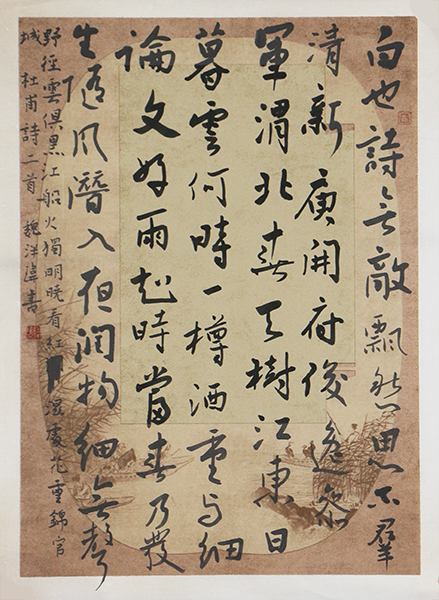 白也詩無敵飄然思不羣
清新庾開府俊逸參
軍渭北春天樹江東日
暮雲何時一樽酒重與細
論文好雨知時當春乃發
生隨風潛入夜潤物細無聲
野徑雲俱黑江船火獨明曉看紅濕處花重錦官
城 杜甫詩二首 魏洋書